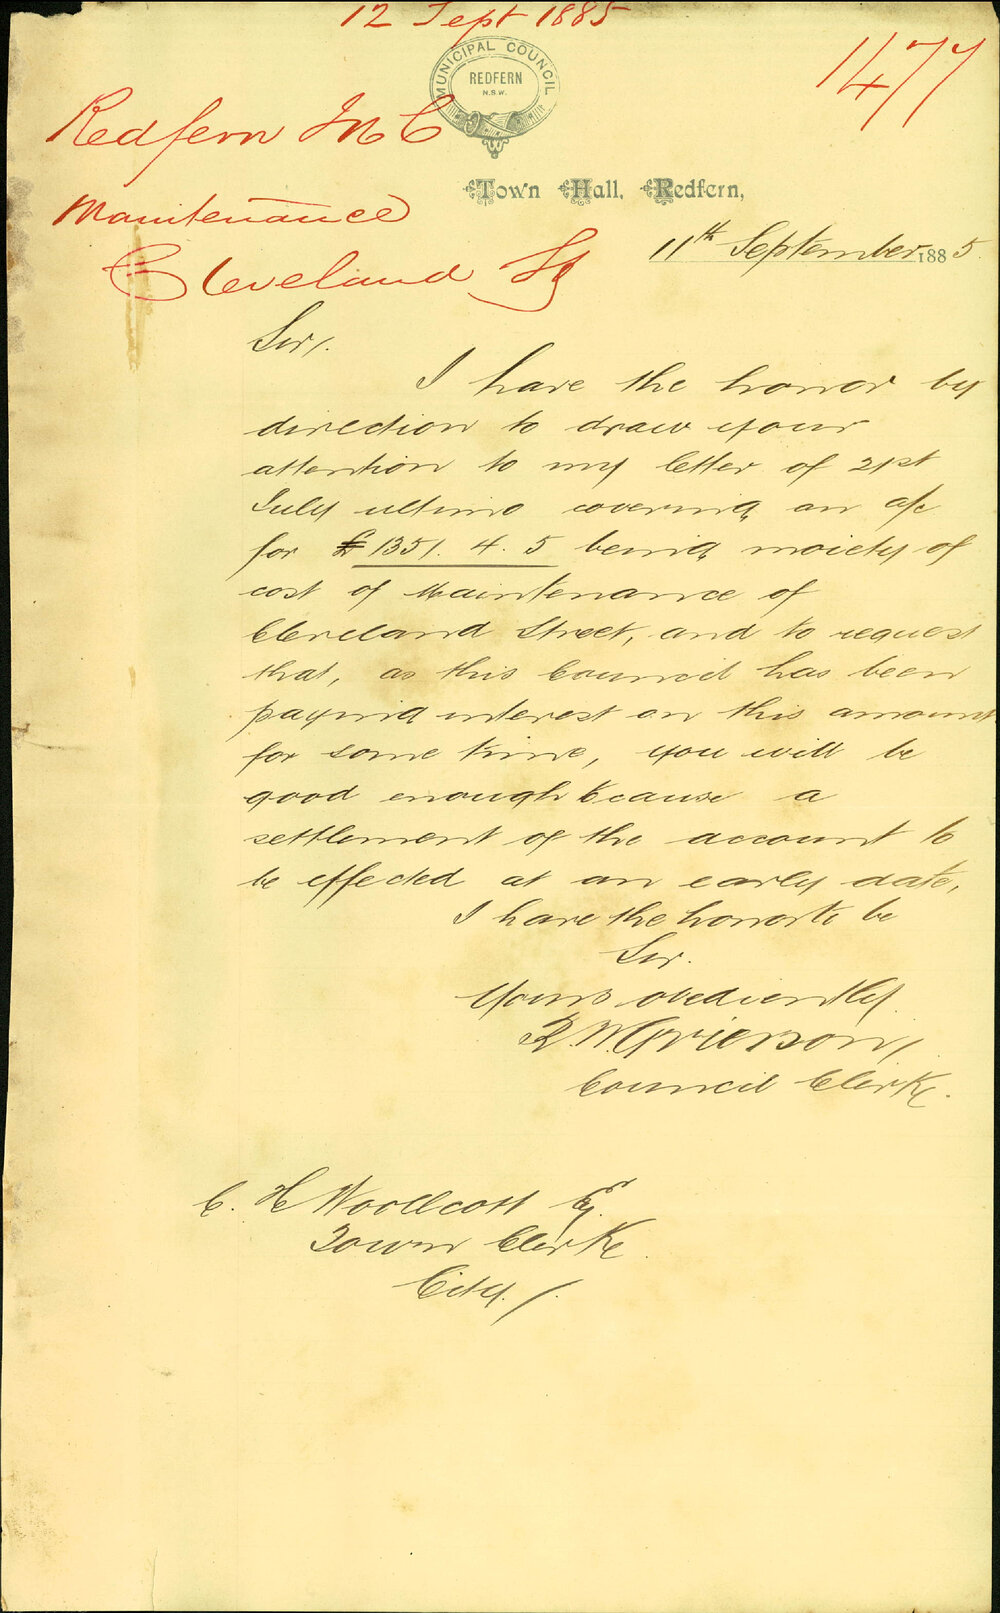 12 Sept 1885
1477
MUNICIPAL COUNCIL
REDFERN
N.S.W.
Redfern M C
Maintenance
Cleveland St
Town Hall, Redfern,
11th September 1885.
Sir,
I have the honor by
direction to draw your
attention to my letter of 21st
July ultimo covering an a/c
for £1351. 4. 5 being moiety of
cost of Maintenance of
Cleveland Street, and to request
that, as this Council has been
paying interest on this amount
for some time, you will be
good enough to cause a
settlement of the account to
be effected at an early date,
I have the honor to be
Sir.
Yours obediently
Grierson
Council Clerk.
C. H Woollcott Esqr
Town Clerk
City.